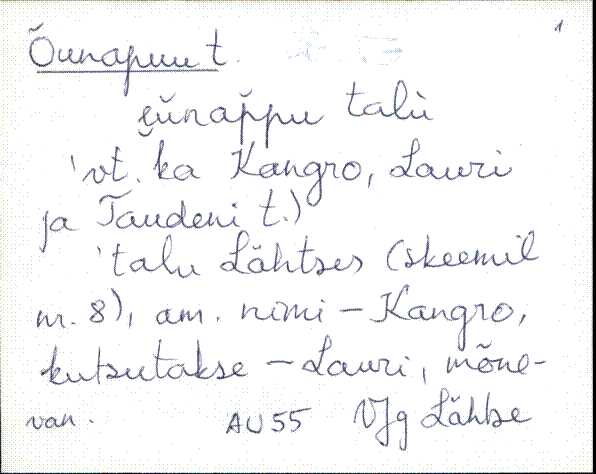 1
Õunapuu t.
e̮ŭnap̆pu talù
'vt. ka Kangro, Lauri
ja Taudeni t.)
'talu Lähtses (skeemil
nr. 8), am. nimi – Kangro,
kutsutakse – Lauri, mõne-
van.
AU55 VJg Lähtse